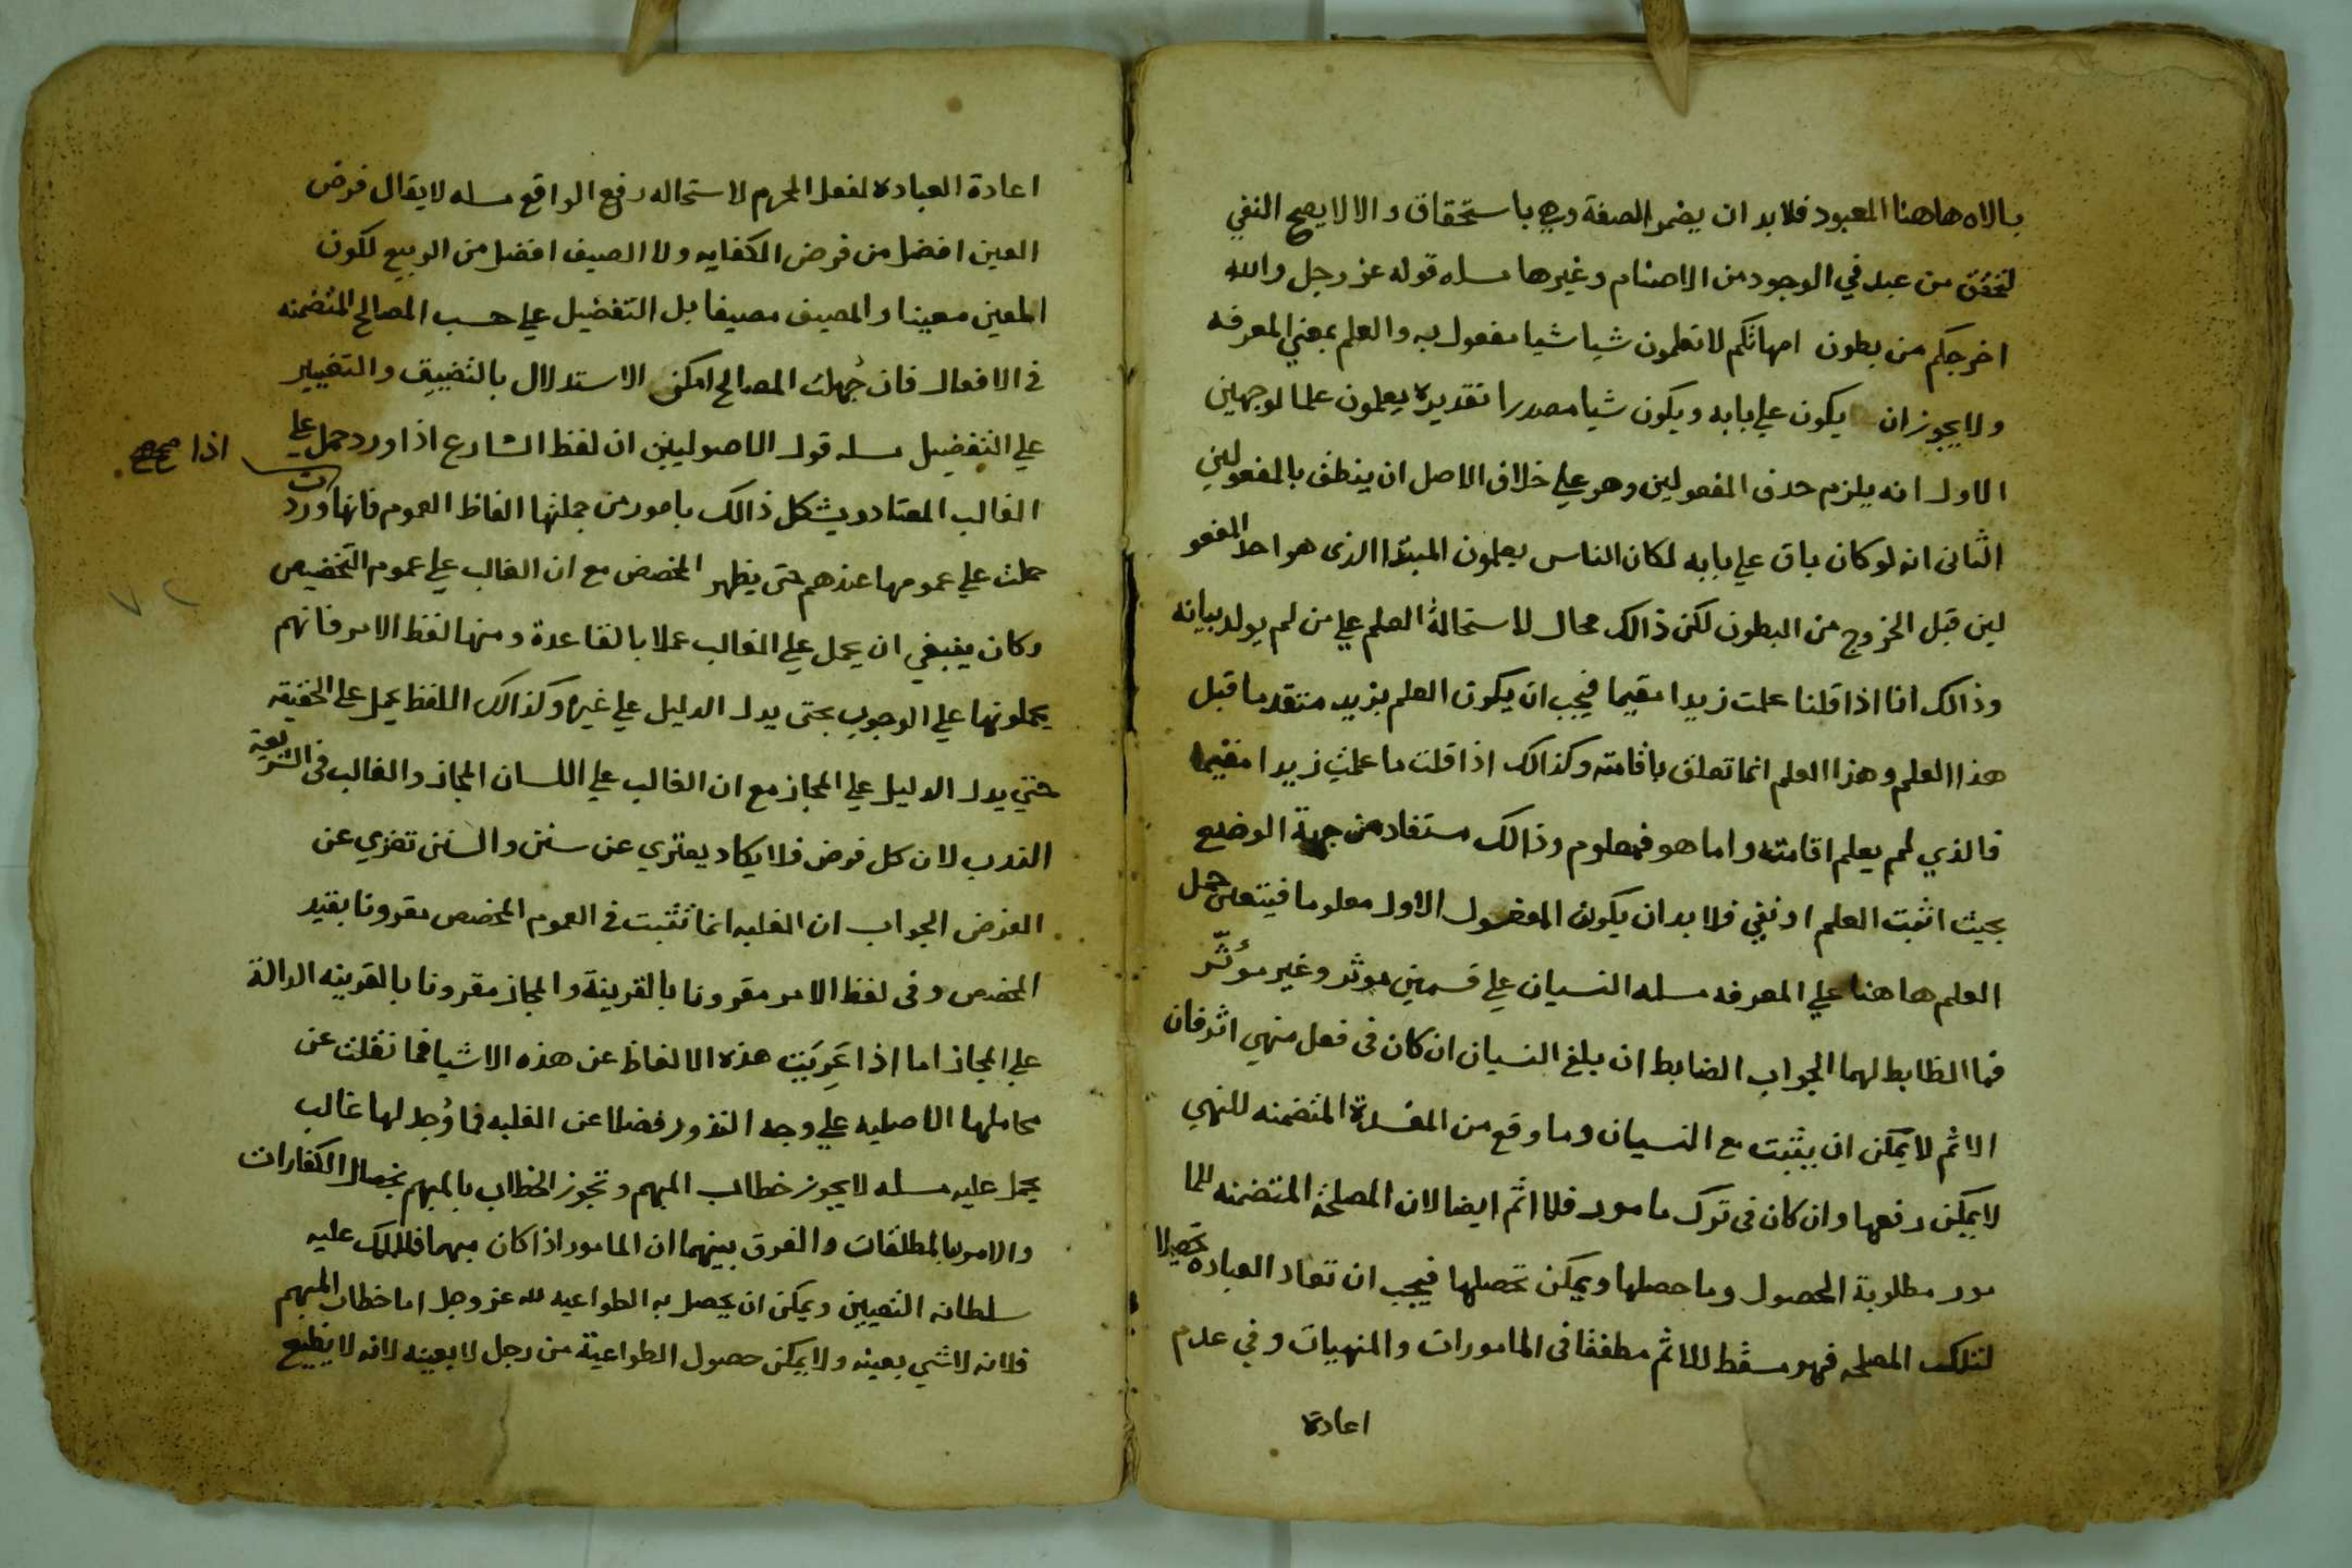 بالاه هاهنا المعبود فلابد ان يضمر الصفة وهي باستحقاق والا لا يصح النفي
لتحقق من عبد في الوجود من الاصنام وغيرها مسله قوله عز وجل والله
اخرجكم من بطون امهاتكم لا تعلمون شيا شيا مفعول به والعلم بمعني المعرفه
ولا يجوز ان يكون علي بابه ويكون شيا مصدرا تقديره يعلمون علما لوجهين
الاول انه يلزم حذف المفعولين وهو علي خلاف الاصل ان ينطق بالمفعولين
الثانى انه لو كان باق علي بابه لكان الناس يعلمون المبتدا الذى هو احد المفعو
لين قبل الخروج من البطون لكن ذالك محال لاستحالة العلم علي من لم يولد بيانه
وذالك انا اذا قلنا علمت زيدا مقيما فيجب ان يكون العلم بزيد متقدما قبل
هذا العلم وهذا العلم انما تعلق باقامته وكذالك اذا قلت ما علمت زيدا مقيما
فالذي لم يعلم اقامته واما هو فمعلوم وذالك مستفاد من جهة الوضع
بحيث اثبت العلم او نفي فلا بد ان يكون المفعول الاول معلوما فيتعين حمل
العلم هاهنا علي المعرفه مسله النسيان علي قسمين موثر وغير موثّر
فما الظابط لهما الجواب الضابط ان يلغ النسيان ان كان فى فعل منهي اثر فان
الاثم لا يمكن ان يثبت مع النسيان وما وقع من المفسدة المتضمنه للنهي
لا يمكن رفعها وان كان فى ترك مامور فلا اثم ايضا لان المصلحة المتضمنه للما
مور مطلوبة الحصول وما حصلها ويمكن تحصلها فيجب ان تعاد العباده تحصيلا
لتلك المصلحه فهو مسقط للاثم مطلقا فى المامورات والمنهيات وفي عدم
اعادة
اعادة العباده لفعل المحرم لاستحاله رفع الواقع مسله لا يقال فرض
العين افضل من فرض الكفايه ولا الصيف افضل من الربيع لكون
المعين معينا والمصيف مصيفا بل التفضيل علي حسب المصالح المتضمنه
فى الافعال فان جُهلت المصالح امكن الاستدلال بالتضييق والتخيير
علي التفضيل مسله قول الاصوليين ان لفظ الشارع اذا ورد حمل علي
اذا صح صح
الغالب المعتاد ويشكل ذالك بامور من جملتها الفاظ العموم فانها وردت
حملت علي عمومها عندهم حتى يظهر المخصص مع ان الغالب علي عموم التخصيص
وكان ينبغي ان يحمل علي الغالب عملا بالقاعدة ومنها لفظ الامر فانهم
يحملونها علي الوجوب حتى يدل الدليل علي غيره وكذالك اللفظ يحمل علي الحقيقه
حتي يدل الدليل علي المجاز مع ان الغالب علي اللسان المجاز والغالب فى الشريعة
الندب لان كل فرض فلا يكاد يعتري عن سنن والسنن تعري عن
الفرض الجواب ان الغلبه انما تثبت فى العموم المخصص مقرونا بقيد
المخصص وفى لفظ الامر مقرونا بالقرينة والمجاز مقرونا بالقرينه الدالة
علي المجاز اما اذا عَرِيَت هذه الالفاظ عن هذه الاشيا فما نقلت عن
محاملها الاصليه علي وجه الندور فضلا عن الغلبه فما وُجد لها غالب
يحمل عليه مسله لا يجوز خطاب المبهم وتجوز الخطاب بالمبهم بخصال الكفارات
والامر بالمطلقات والفرق بينهما ان المامور اذا كان مبهما فللملك عليه
سلطانه التعيين ويمكن ان يحصل به الطواعيه لله عز وجل اما خطاب المبهم
فلانه لاشي بعينه ولا يمكن حصول الطواعية من رجل لا بعينه لانه لا يطيع
٧٢